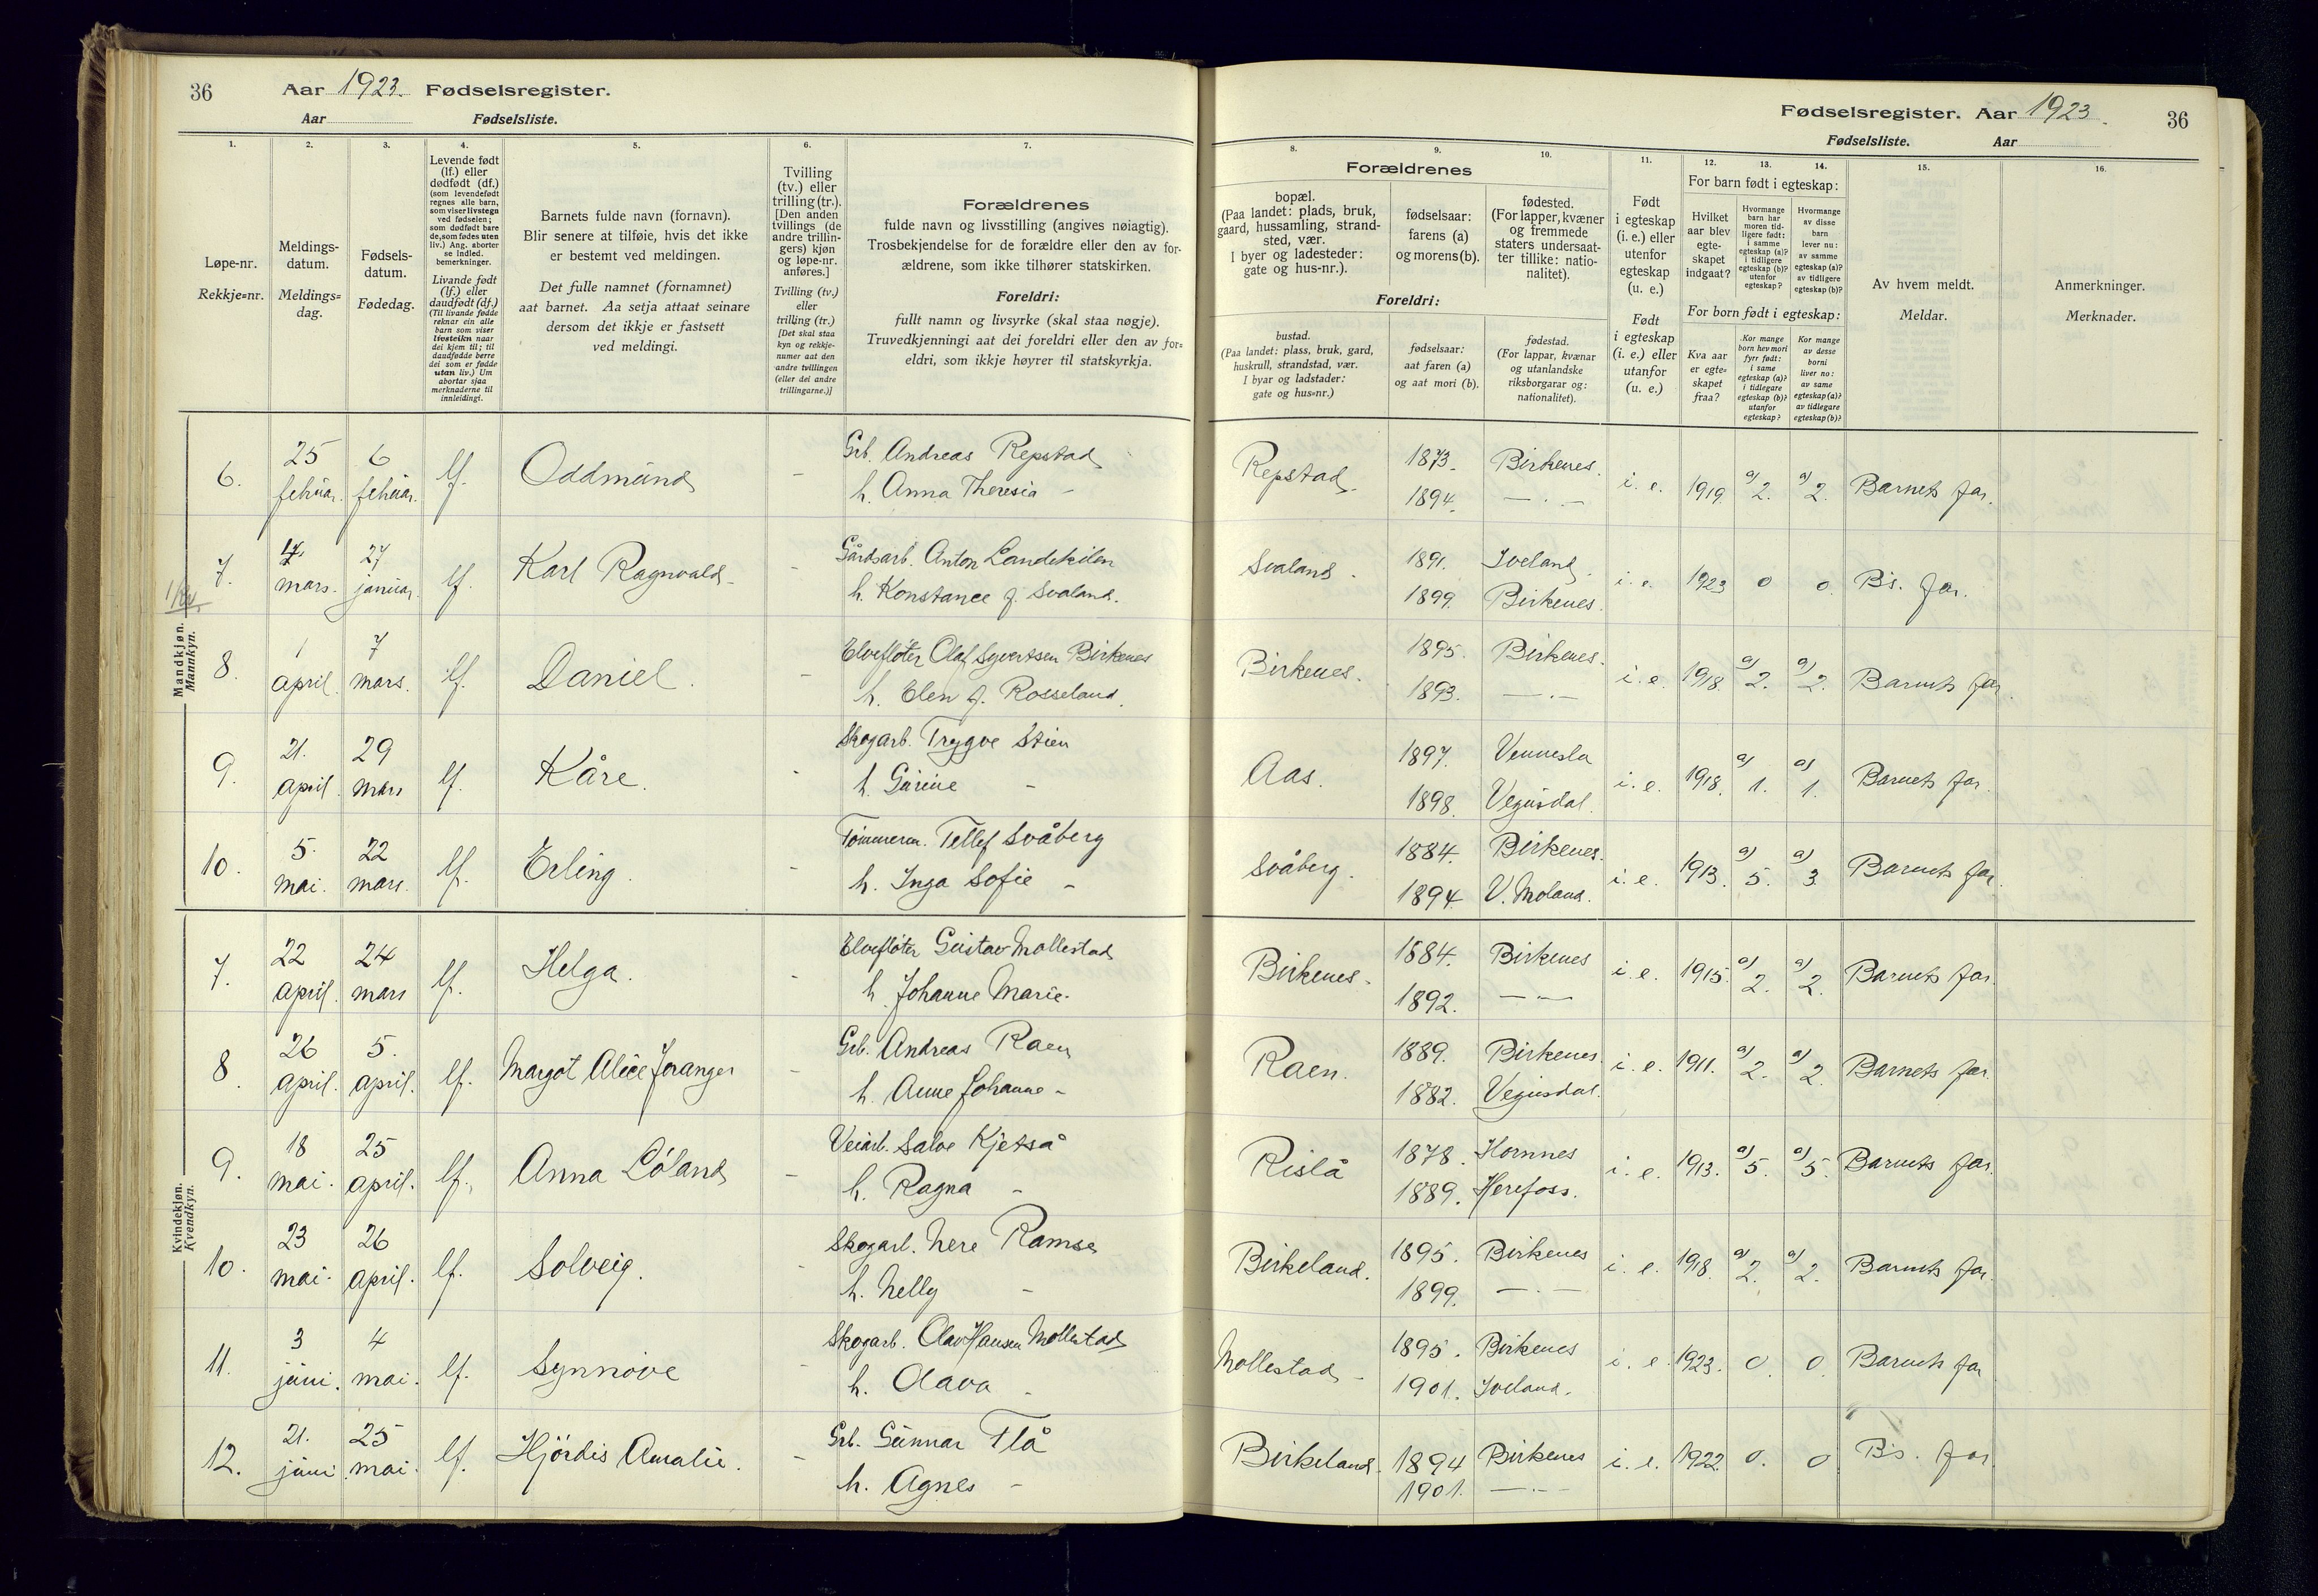 36 Aar 1923. Fødselsregister.
Aar Fødselsliste.
Fødselsregister. Aar 1923. 36
Fødselsliste. Aar
1.
Løpe-nr.
Rekkje-nr.
2.
Meldings-
datum.
Meldings-
dag.
3.
Fødsels-
datum.
Fødedag.
4.
Levende født
(lf.) eller
dødfødt (df.)
(som levendefødt
regnes alle barn,
som viser livstegn
ved fødselen;
som dødfødt bare
de, som fødes uten
liv.) Ang. aborter
se indled.
bemerkninger.
Livande født
(lf.) eller
daudfødt (df.)
(Til livande fødde
reknar ein alle
barn som viser
livsteikn naar
dei kjem til; til
daudfødde berre
dei som er fødde
utan liv.) Um
abortar sjaa
merknaderne til
innleidingi.
5.
Barnets fulde navn (fornavn).
Blir senere at tilføie, hvis det ikke
er bestemt ved meldingen.
Det fulle namnet (fornamnet)
aat barnet. Aa setja attaat seinare
dersom det ikkje er fastsett
ved meldingi.
6.
Tvilling
(tv.) eller
trilling (tr.).
[Den anden
tvillings (de
andre trillin-
gers) kjøn
og løpe-nr.
anføres.]
Tvilling (tv.)
eller
trilling (tr.)
[Det skal staa
kyn og rekkje-
numer aat den
andre tvillingen
(eller dei andre
trillingarne.)]
7.
Forældrenes
fulde navn og livsstilling (angives nøiagtig).
Trosbekjendelse for de forældre eller den av for-
ældrene, som ikke tilhører statskirken.
Foreldri:
fullt namn og livsyrke (skal staa nøgje).
Truvedkjenningi aat dei foreldri eller den av for-
eldri, som ikkje høyrer til statskyrkja.
Forældrenes
8.
bopæl.
(Paa landet: plads, bruk,
gaard, hussamling, strand-
sted, vær.
I byer og ladesteder:
gate og hus-nr.).
9.
fødselsaar:
farens (a)
og morens (b).
10.
fødested.
(For lapper, kvæner
og fremmede
staters undersaat-
ter tillike: natio-
nalitet).
Foreldri:
bustad.
(Paa landet: plass, bruk, gard,
huskrull, strandstad, vær.
I byar og ladstader:
gate og hus-nr.)
fødselsaar:
aat faren (a)
og aat mori (b).
fødestad.
(For lappar, kvænar
og utanlandske
riksborgarar og:
nationalitet).
11.
Født
i egteskap
(i. e.) eller
utenfor
egteskap
(u. e.)
Født
i egteskap
(i. e.) eller
utanfor
(u. e.)
12. 13. 14.
For barn født i egteskap:
Hvilket
aar blev
egte-
skapet
indgaat?
Hvormange
barn har
moren tid-
ligere født:
i samme
egteskap (a)?
i tidligere
egteskap (b)?
utenfor
egteskap?
Hvormange
av disse
barn
lever nu:
av samme
egteskap (a)?
av tidligere
egteskap (b)?
For born født i egteskap:
Kva aar
er egte-
skapet
fraa?
Kor mange
born hev mori
fyrr født:
i same
egteskap (a)?
i tidlegare
egteskap (b)?
utanfor
egteskap?
Kor mange
av desse
borni
liver no:
av same
egteskap (a)?
av tidlegare
egteskap (b)?
15.
Av hvem meldt.
Meldar.
16.
Anmerkninger.
Merknader.
Mandkjøn.
Mannkyn.
6. 25 februar. 6 februar. lf. Oddmund - Grb. Andreas Repstad Repstad. 1873. Birkenes. i. e. 1919 a) 2. a) 2. Barnets far.
h. Anna Theresia - 1894. — . —
7. mars. 27 januar. lf. Karl Ragnvald - - Gårdsarb. Anton Landekilen Svaland. 1891. Iveland. i. e. 1923 0 0. B's. far.
h. Konstance f. Svaland. 1899. Birkenes.
8. 1 april. 7 mars. lf. Daniel. - Elvefløter Olaf Syvertsen Birkenes Birkenes. 1895. Birkenes. i. e. 1918. a) 2. a) 2. Barnets far
h. Elen f. Rosseland. 1893. — . —
9. 21. april 29 mars lf. Kåre. - Skogarb. Trygve Stien Aas. 1897. Vennesla i. e. 1918. a) 1. a) 1. Barnets far.
h. Gurine - 1898. Vegusdal.
10. 5. mai. 22 mars. lf. Erling. - Tømmerm. Tellef Svåberg Svåberg. 1884. Birkenes. i. e. 1913. a) 5. a) 3. Barnets far.
h. Inga Sofie - 1894. V. Moland.
Kvindekjøn.
Kvendkyn.
7. 22 april. 24 mars lf. Helga. - Elvefløter Gustav Mollestad Birkenes. 1884. Birkenes i. e. 1915. a) 2. a) 2. Barnets far.
h. Johanne Marie. 1892. — —
8. 26 april. 5. april. lf. Margot Alice Joranger - Grb. Andreas Raen Raen. 1889. Birkenes. i. e. 1911. a) 2. a) 2. Barnets far.
h. Anne Johanne - 1882. Vegusdal.
9. 18 mai. 25 april. lf. Anna Löland - Veiarb. Salve Kjetså Rislå 1878. Hornnes i. e. 1913. a) 5. a) 5. Barnets far.
h. Ragna - 1889. Herefoss.
10. 23 mai. 26 april. lf. Solveig. - Skogarb. Nere Ramse Birkeland. 1895. Birkenes i. e. 1918. a) 2. a) 2. Barnets far.
h. Nelly - 1899. — . —
11. 3 juni. 4 mai. lf. Synnøve - Skogarb. Olav Hansen Mollestad Mollestad - 1895. Birkenes i. e. 1923. 0. 0. Barnets far
h. Olava - 1901. Iveland.
12. 21. juni 25 mai. lf. Hjördis Amalie. - Grb. Gunnar Flå Birkeland. 1894 Birkenes i. e. 1922. 0. 0 B's. far
h. Agnes - 1901. — . —